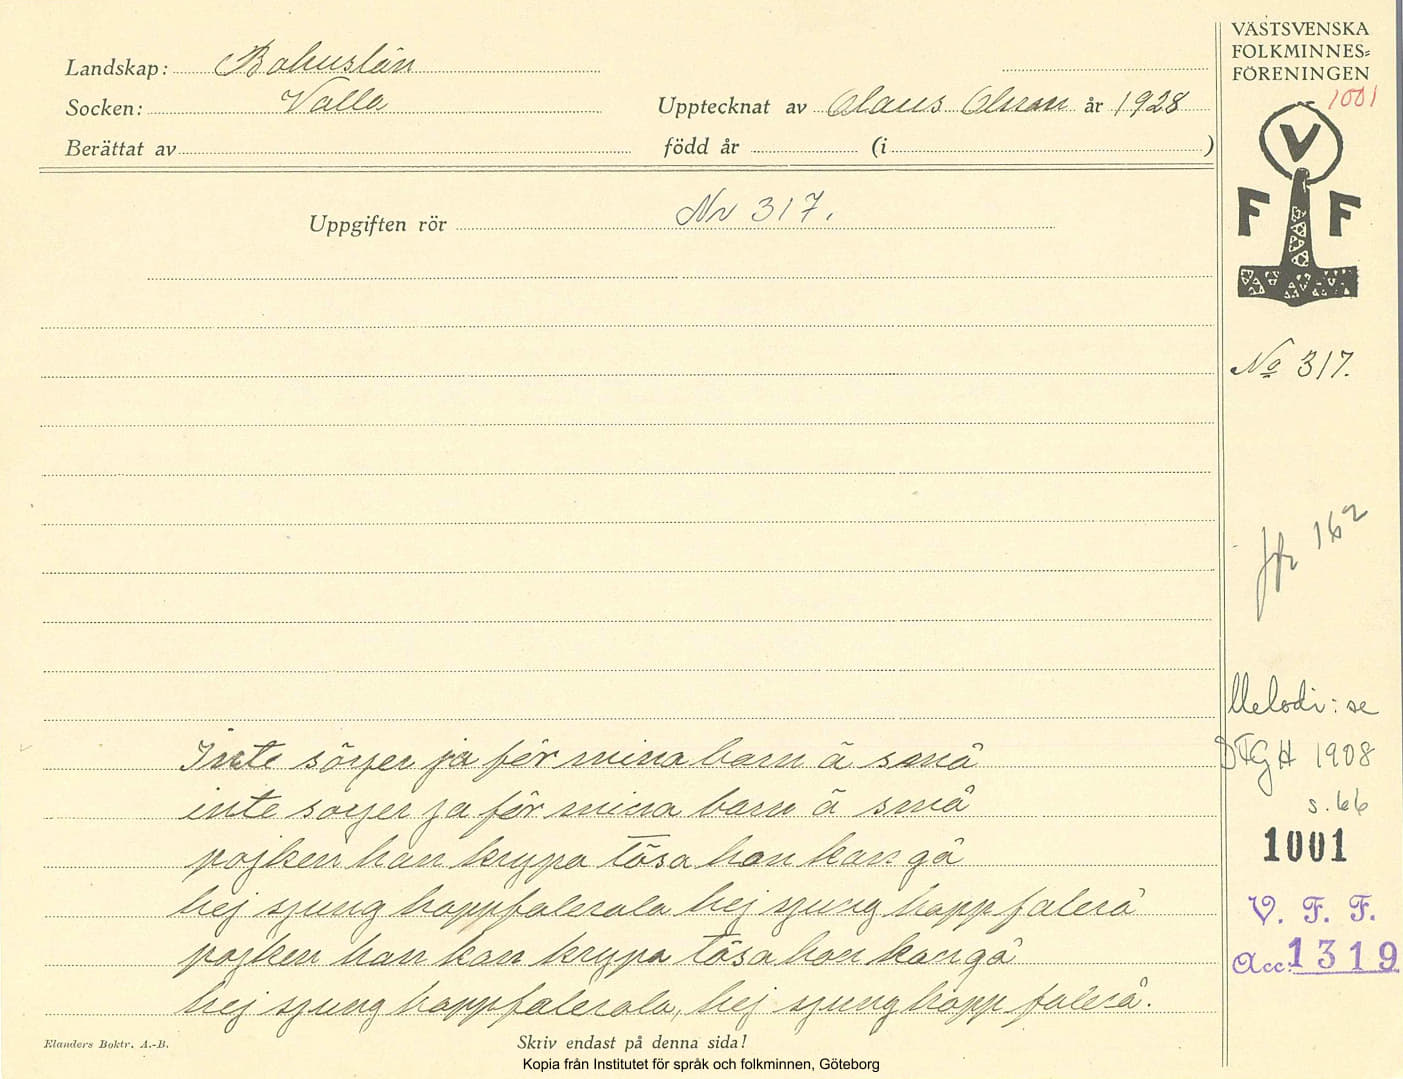 Landskap: Bohuslän
Socken: Valla
Upptecknat av Olaus Olsson år 1928
Berättat av
född år (i )
Uppgiften rör Nr 317.
Inte sörjer ja för mina barn ä små
inte sörjer ja för mina barn ä små
pojken han krypa tösa hon kan gå
hej sjung hoppfalerala hej sjung hopp falerå
pojken han kan krypa tösa hon kan gå
hej sjung hoppfalerala, hej sjung hopp falerå.
Elanders Boktr. A.-B.
Skriv endast på denna sida!
Kopia från Institutet för språk och folkminnen, Göteborg
VÄSTSVENSKA
FOLKMINNES=
FÖRENINGEN
1001
V
F F
No 317.
jfr 162
Melodi: se
1908
s. 66
1001
V. F. F.
Acc: 1319